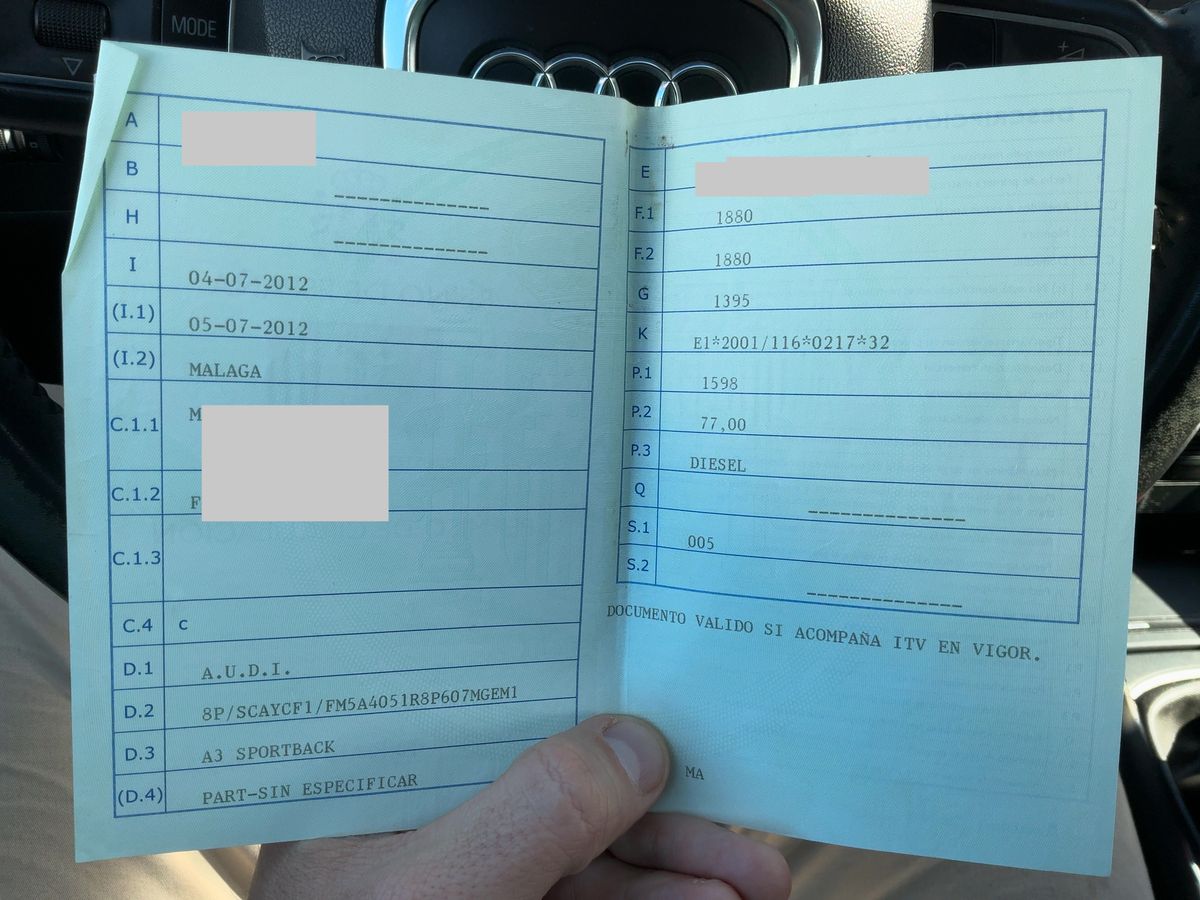 MODE
A
B -------------
H -------------
I 04-07-2012
(I.1) 05-07-2012
(I.2) MALAGA
C.1.1 M
C.1.2 F
C.1.3
C.4 c
D.1 A.U.D.I.
D.2 8P/SCAYCF1/FM5A4051R8P607MGEM1
D.3 A3 SPORTBACK
(D.4) PART-SIN ESPECIFICAR
E
F.1 1880
F.2 1880
G 1395
K E1*2001/116*0217*32
P.1 1598
P.2 77,00
P.3 DIESEL
Q -------------
S.1 005
S.2 -------------
DOCUMENTO VALIDO SI ACOMPAÑA ITV EN VIGOR.
MA